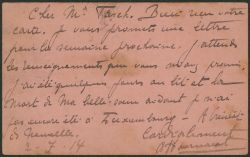 Cher Mr Tasch. Bien reçu votre
carte. Je vous promets une lettre
pour la semaine prochaine. J'attends
les renseignements que vous m'avez promis.
J'ai été quelques jours au lit et la
mort de ma belle-sœur aidant je n'ai
pas encore été à Luxembourg - A
de Bruxelles. Cordialement
2-7-14